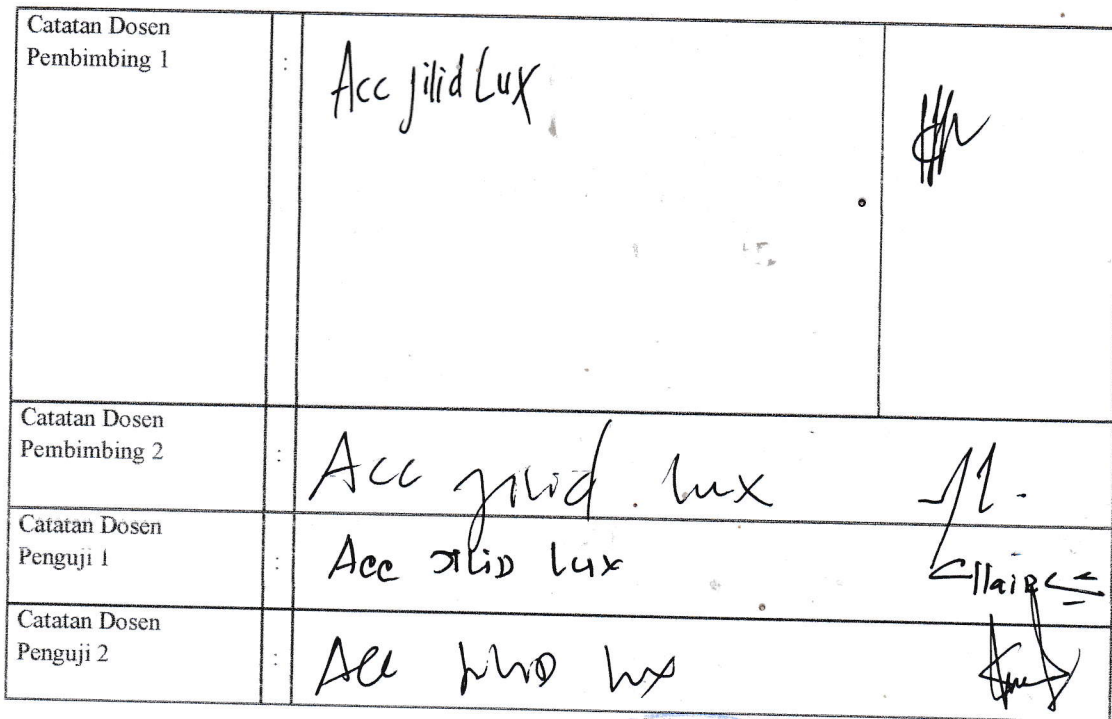 Catatan Dosen
Pembimbing 1 : Acc jilid Lux
Catatan Dosen
Pembimbing 2 : Acc jilid. lux
Catatan Dosen
Penguji 1 : Acc JILID Lux
Catatan Dosen
Penguji 2 : Acc jilid lux